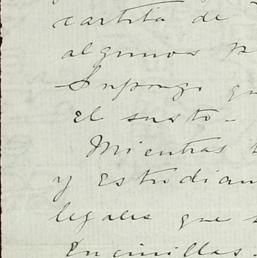 cartita de
algunos p
Supongo qu
el susto-
Mientras t
y Estudian
legales que s
Encinillas.